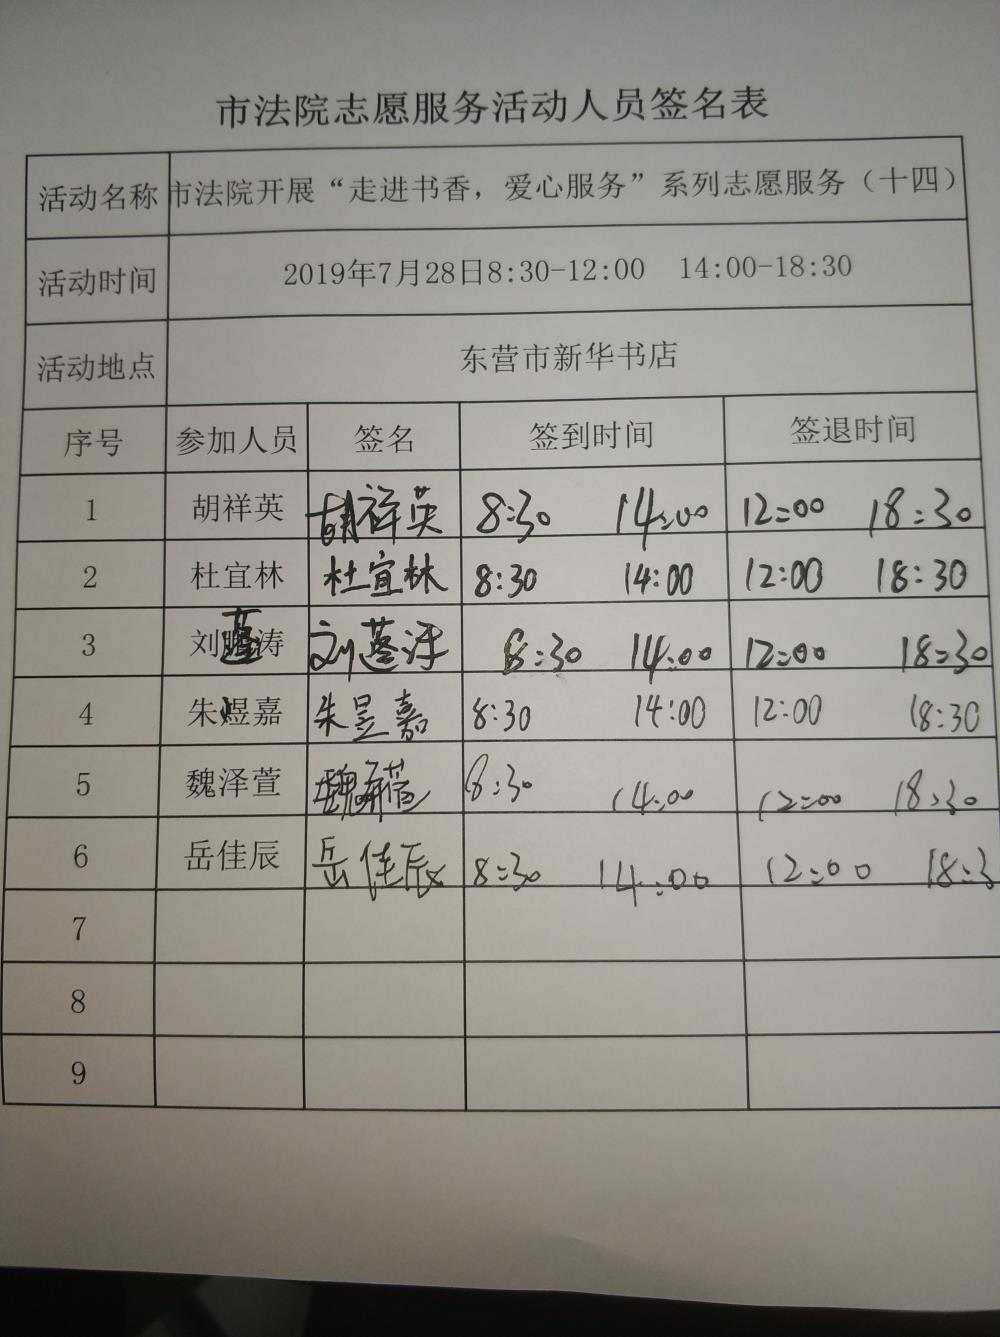 市法院志愿服务活动人员签名表
活动名称 市法院开展“走进书香，爱心服务”系列志愿服务（十四）
活动时间 2019年7月28日8:30-12:00 14:00-18:30
活动地点 东营市新华书店
序号 参加人员 签名 签到时间 签退时间
1 胡祥英 胡祥英 8:30 14:00 12:00 18:30
2 杜宜林 杜宜林 8:30 14:00 12:00 18:30
3 刘蓬涛 刘蓬涛 8:30 14:00 12:00 18:30
4 朱煜嘉 朱昱嘉 8:30 14:00 12:00 18:30
5 魏泽萱 魏泽萱 8:30 14:00 12:00 18:30
6 岳佳辰 岳佳辰 8:30 14:00 12:00 18:3
7
8
9